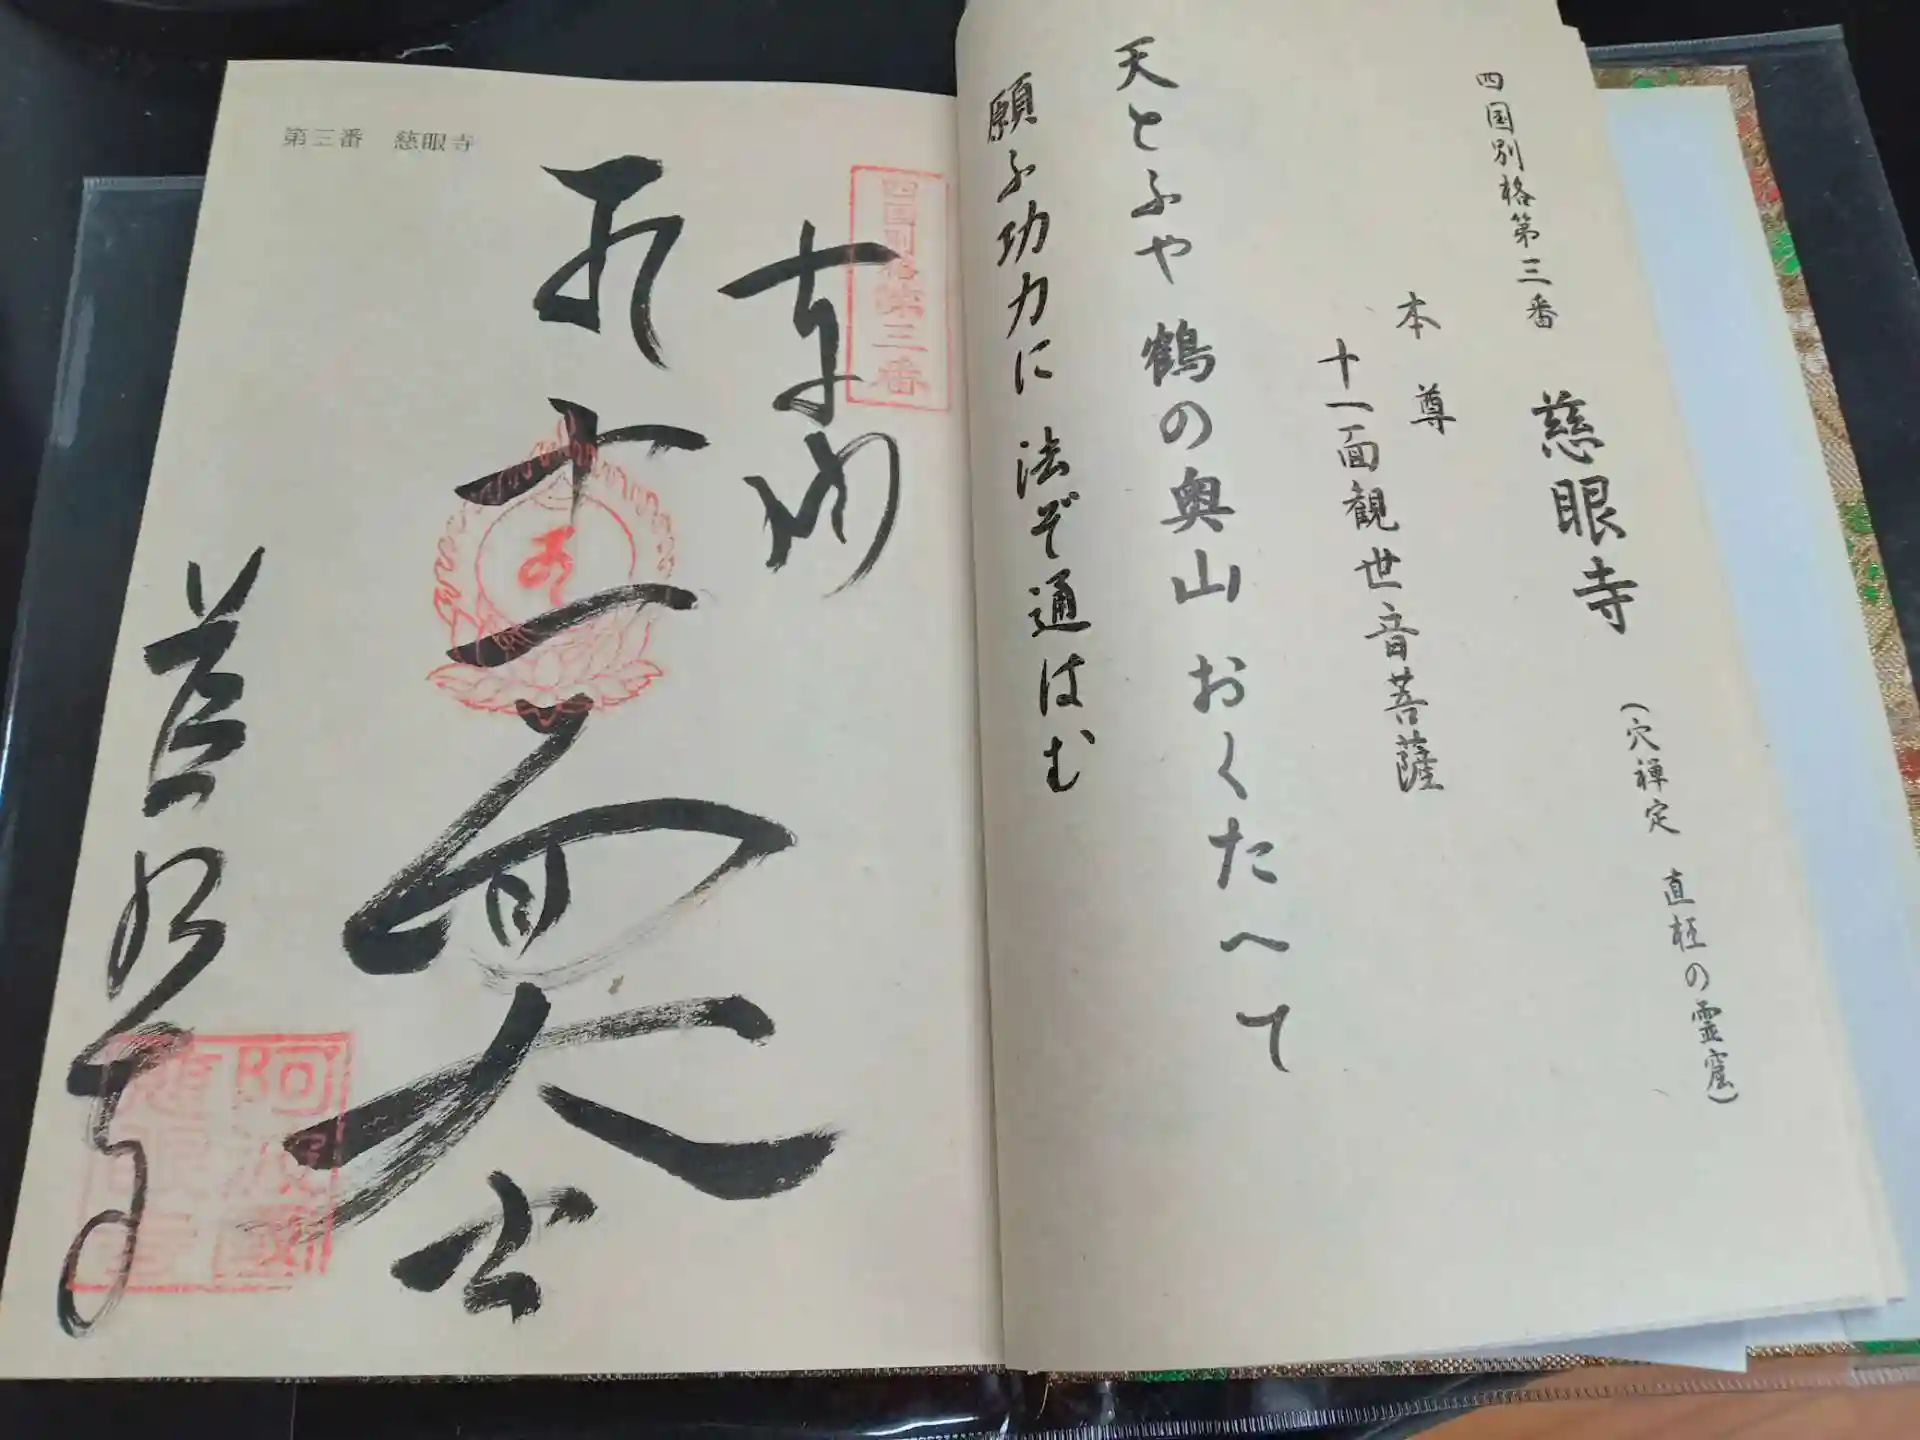 四国別格第三番 慈眼寺 (穴禅定 直枉の霊窟)
本尊
十一面観世音菩薩
天とふや 鶴の奥山 おくたへて
願ふ功力に 法ぞ通はむ
四国別格第三番
奉納
十一面大士
慈眼寺
阿波國
慈眼寺
第三番 慈眼寺